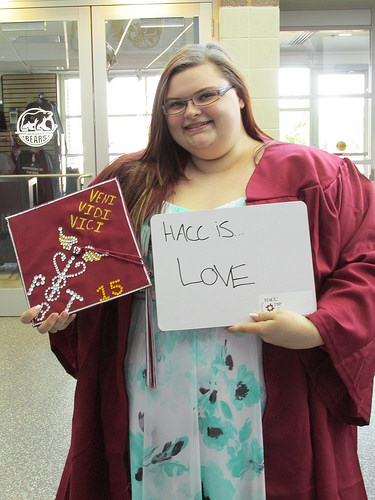 BEARS
VENI
VIDI
VICI
15
HACC IS...
LOVE
HACC